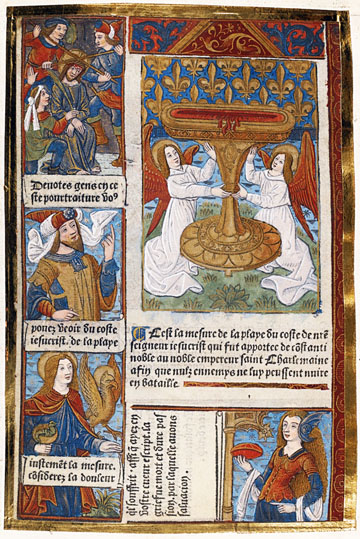 Devotes gens en ce
ste pourtraiture vo9
povez veoir du coste
iesucrist. de la playe
iustemēt la mesure.
cōsiderez la douleur
Cest la mesure de la playe du coste de nr̄e
seigneur iesucrist qui fut apportee de cōstanti
noble au noble empereur saint Charlemaine
afin que nulz ennemys ne luy peussent nuire
en bataille.
il souffrit. affī q̄ ayez en
vostre cueur escript. la
griefue mort et dure pas
sion. par laquelle avons
saluation.